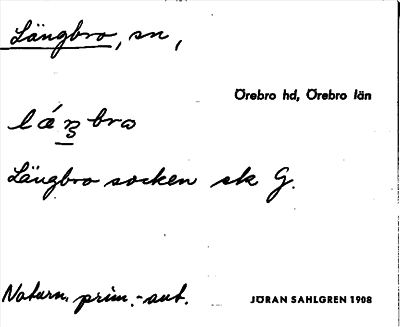 Längbro, sn,
Örebro hd, Örebro län
Längbro socken sk G.
Naturn. prim.-aut.
JÖRAN SAHLGREN 1908